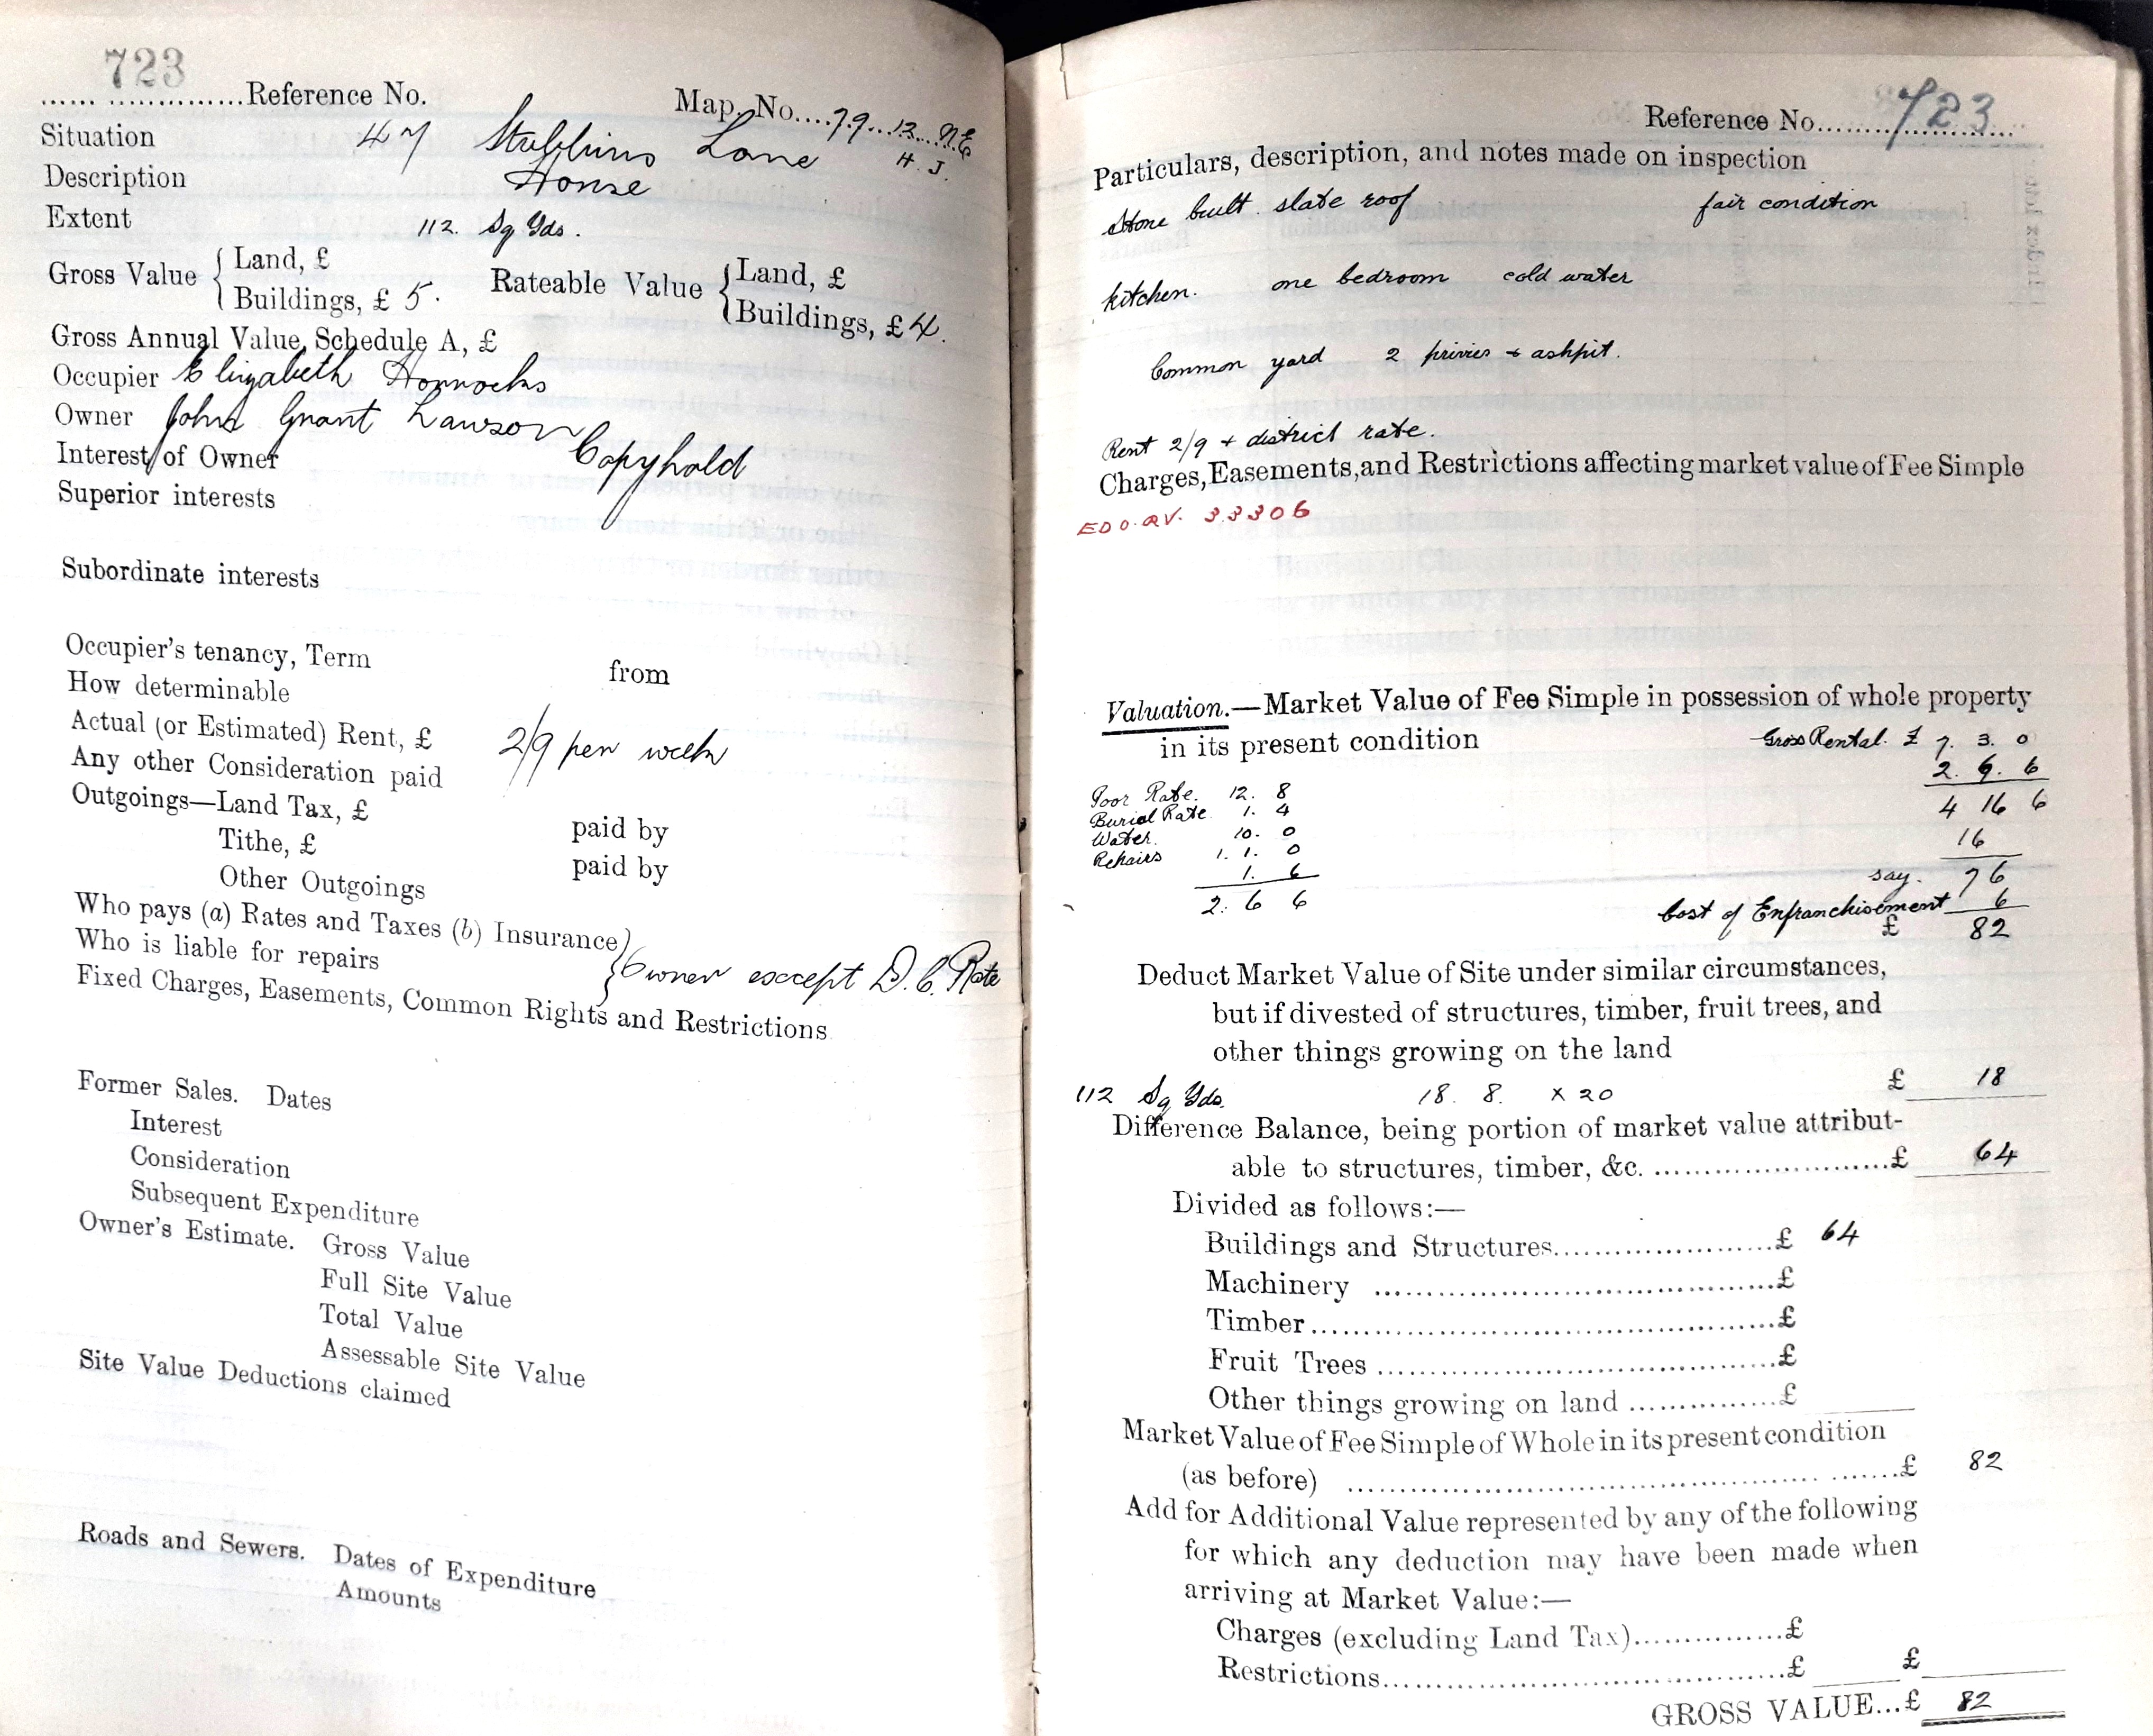 723
...... ..............Reference No.
Map. No....79...12...N.E
H. J.
Situation 47 Stubbins Lane
Description House
Extent 112. Sq Yds.
Gross Value { Land, £ Rateable Value { Land, £
Buildings, £ 5. Buildings, £ 4.
Gross Annual Value, Schedule A, £
Occupier Elizabeth Horrocks
Owner John Grant Lawson
Interest of Owner Copyhold
Superior interests
Subordinate interests
Occupier's tenancy, Term from
How determinable
Actual (or Estimated) Rent, £ 2/9 per week
Any other Consideration paid
Outgoings—Land Tax, £ paid by
Tithe, £ paid by
Other Outgoings
Who pays (a) Rates and Taxes (b) Insurance }
Who is liable for repairs } Owner except D.C. Rate
Fixed Charges, Easements, Common Rights and Restrictions
Former Sales. Dates
Interest
Consideration
Subsequent Expenditure
Owner's Estimate. Gross Value
Full Site Value
Total Value
Assessable Site Value
Site Value Deductions claimed
Roads and Sewers. Dates of Expenditure
Amounts
Reference No.......723......
Particulars, description, and notes made on inspection
Stone built. slate roof fair condition
kitchen. one bedroom cold water
Common yard 2 privies + ashpit.
Rent 2/9 + district rate.
Charges, Easements, and Restrictions affecting market value of Fee Simple
EDO. RV. 33306
Valuation.—Market Value of Fee Simple in possession of whole property
in its present condition Gross Rental. £ 7. 3. 0
2. 6. 6
Poor Rate. 12. 8
4 16 6
Burial Rate 1. 4
Water. 10. 0
16
Repairs 1. 1. 0
1. 6
say. 76
2. 6 6
Cost of Enfranchisement 6
£ 82
Deduct Market Value of Site under similar circumstances,
but if divested of structures, timber, fruit trees, and
other things growing on the land
112 Sq Yds. 18. 8. x 20 £ 18
Difference Balance, being portion of market value attribut-
able to structures, timber, &c. ........................£ 64
Divided as follows:—
Buildings and Structures........................£ 64
Machinery ............................................£
Timber..................................................£
Fruit Trees ...........................................£
Other things growing on land ................£
Market Value of Fee Simple of Whole in its present condition
(as before) ....................................................£ 82
Add for Additional Value represented by any of the following
for which any deduction may have been made when
arriving at Market Value:—
Charges (excluding Land Tax)...............£
Restrictions...........................................£ £
GROSS VALUE...£ 82